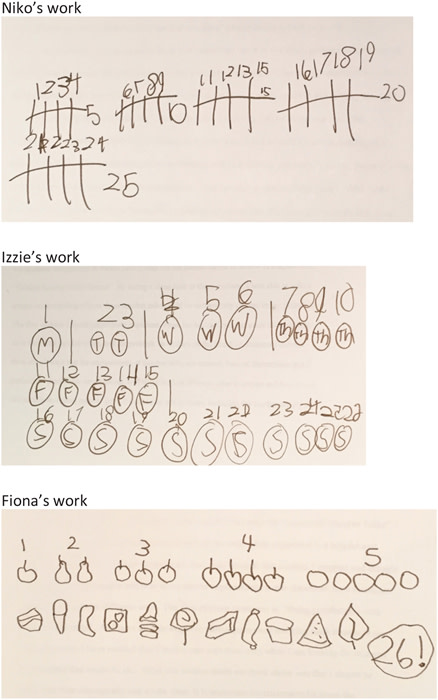 Niko's work
1 2 3 4 5 6 7 8 9 10 11 12 13 15 15 16 17 18 19 20
21 22 23 24 25
Izzie's work
1 2 3 4 5 6 7 8 9 10
M T T W W W Th Th Th Th
11 12 13 14 15
F F F F F
16 17 18 19 20 21 22 23 24
S S S S S S S S S S S
Fiona's work
1 2 3 4 5
26!